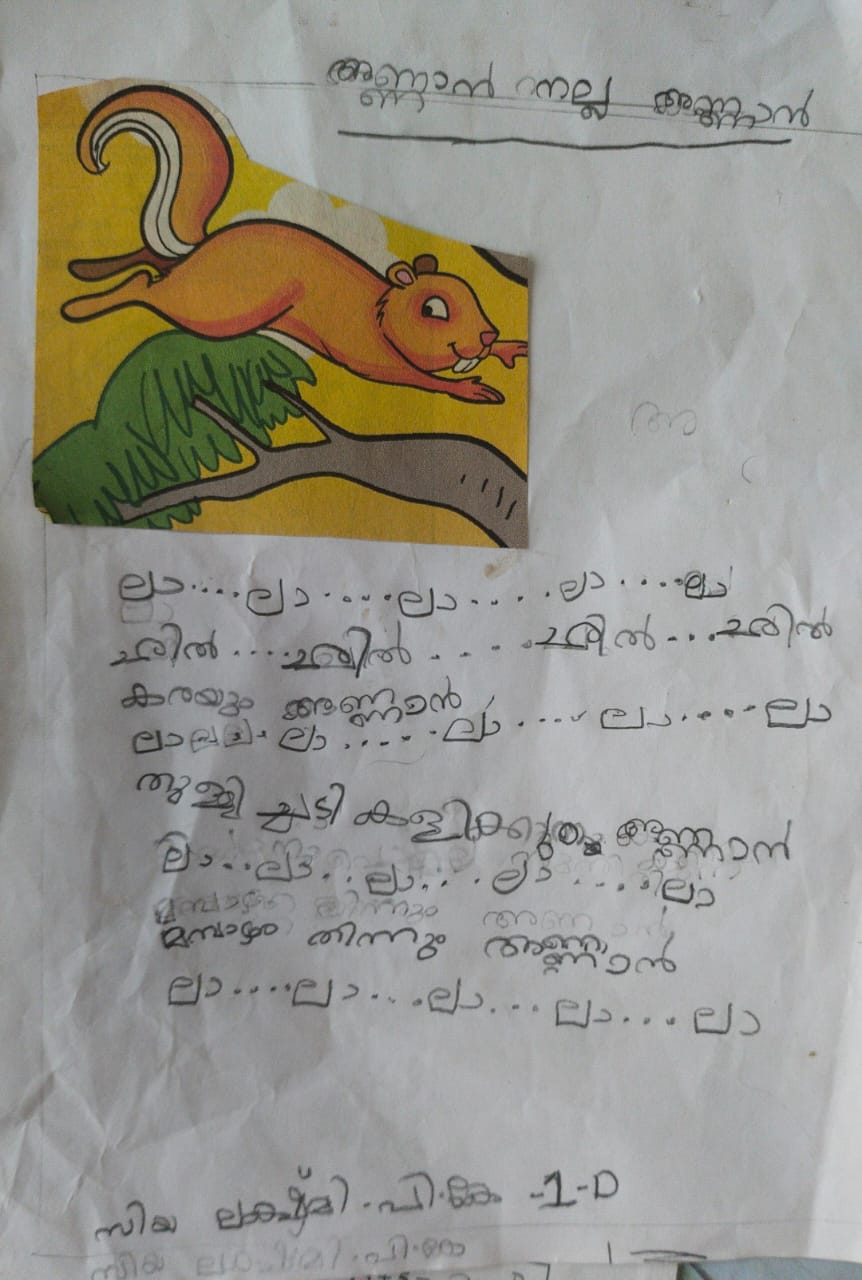 അണ്ണാൻ നല്ല അണ്ണാൻ
ലാ....ലാ.....ലാ.....ലാ.....ലാ
ചിൽ ....ചിൽ .... ചിൽ ...ചിൽ
കരയും അണ്ണാൻ
ലാലലലാ ..... ലാ .... ലാ..... ലാ
തുള്ളി ച്ചാടി കളിക്കും അണ്ണാൻ
ലാ...ലാ...ലാ....ലാ.....ലാ
മാമ്പഴം തിന്നും അണ്ണാൻ
ലാ....ലാ....ലാ....ലാ....ലാ
സിയ ലക്ഷ്മി.പി.കെ -1-D